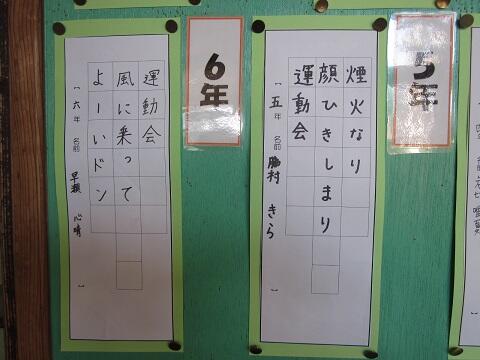 5年
煙火なり
顔ひきしまり
運動会
五年 名前 勝村 きら
6年
運動会
風に乗って
よーいドン
六年 名前 早瀬 心晴